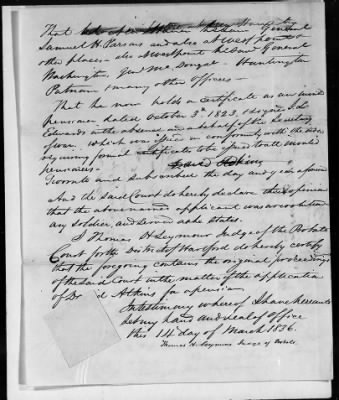 That he saw General
Samuel H. Parsons and also at West point &
other places - also at West point he saw General
Washington, Genl Mc Dougal - Huntington
Putnam & many other officers -
That he now holds a certificate as an invalid
pensioner dated October 3d 1823, signed J. L
Edwards in the absence and on behalf of the Secretary
of war, which was in conformity with the
former certificates to be from the invalid
pensioners -
David Atkins
Sworn to and subscribed the day and year aforesaid
And the said Court do hereby declare their opinion
that the above named applicant was a revolutionary
soldier, and served as he states.
I Thomas H Seymour Judge of the Probate
Court for the District of Hartford do hereby certify
that the foregoing contains the original proceedings
of the said Court in the matter of the application
of D d Atkins for a pension
In testimony whereof I have hereunto
set my hand and seal of office
this 14th day of March 1836.
Thomas H. Seymour Judge of Probate